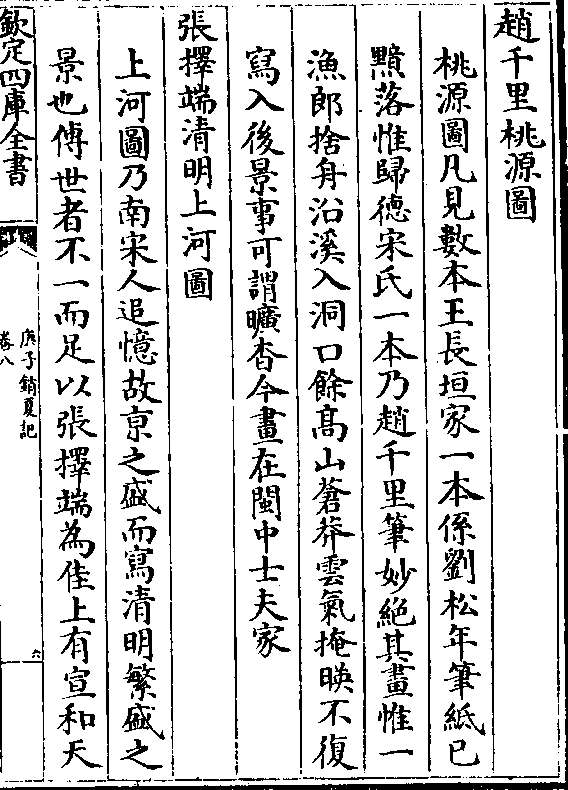 趙千里桃源圖
桃源圖凡見數本王長垣家一本係劉松年筆紙已
黦落惟歸德宋氏一本乃趙千里筆妙絕其畫惟一
漁郎捨舟沿溪入洞口餘高山蒼莽雲氣掩暎不復
寫入後景事可謂曠杳今畫在閩中士夫家
張擇端清明上河圖
上河圖乃南宋人追憶故京之盛而寫清明繁盛之
景也傳世者不一而足以張擇端為佳上有宣和天
欽定四庫全書
庚子銷夏記
卷八
六